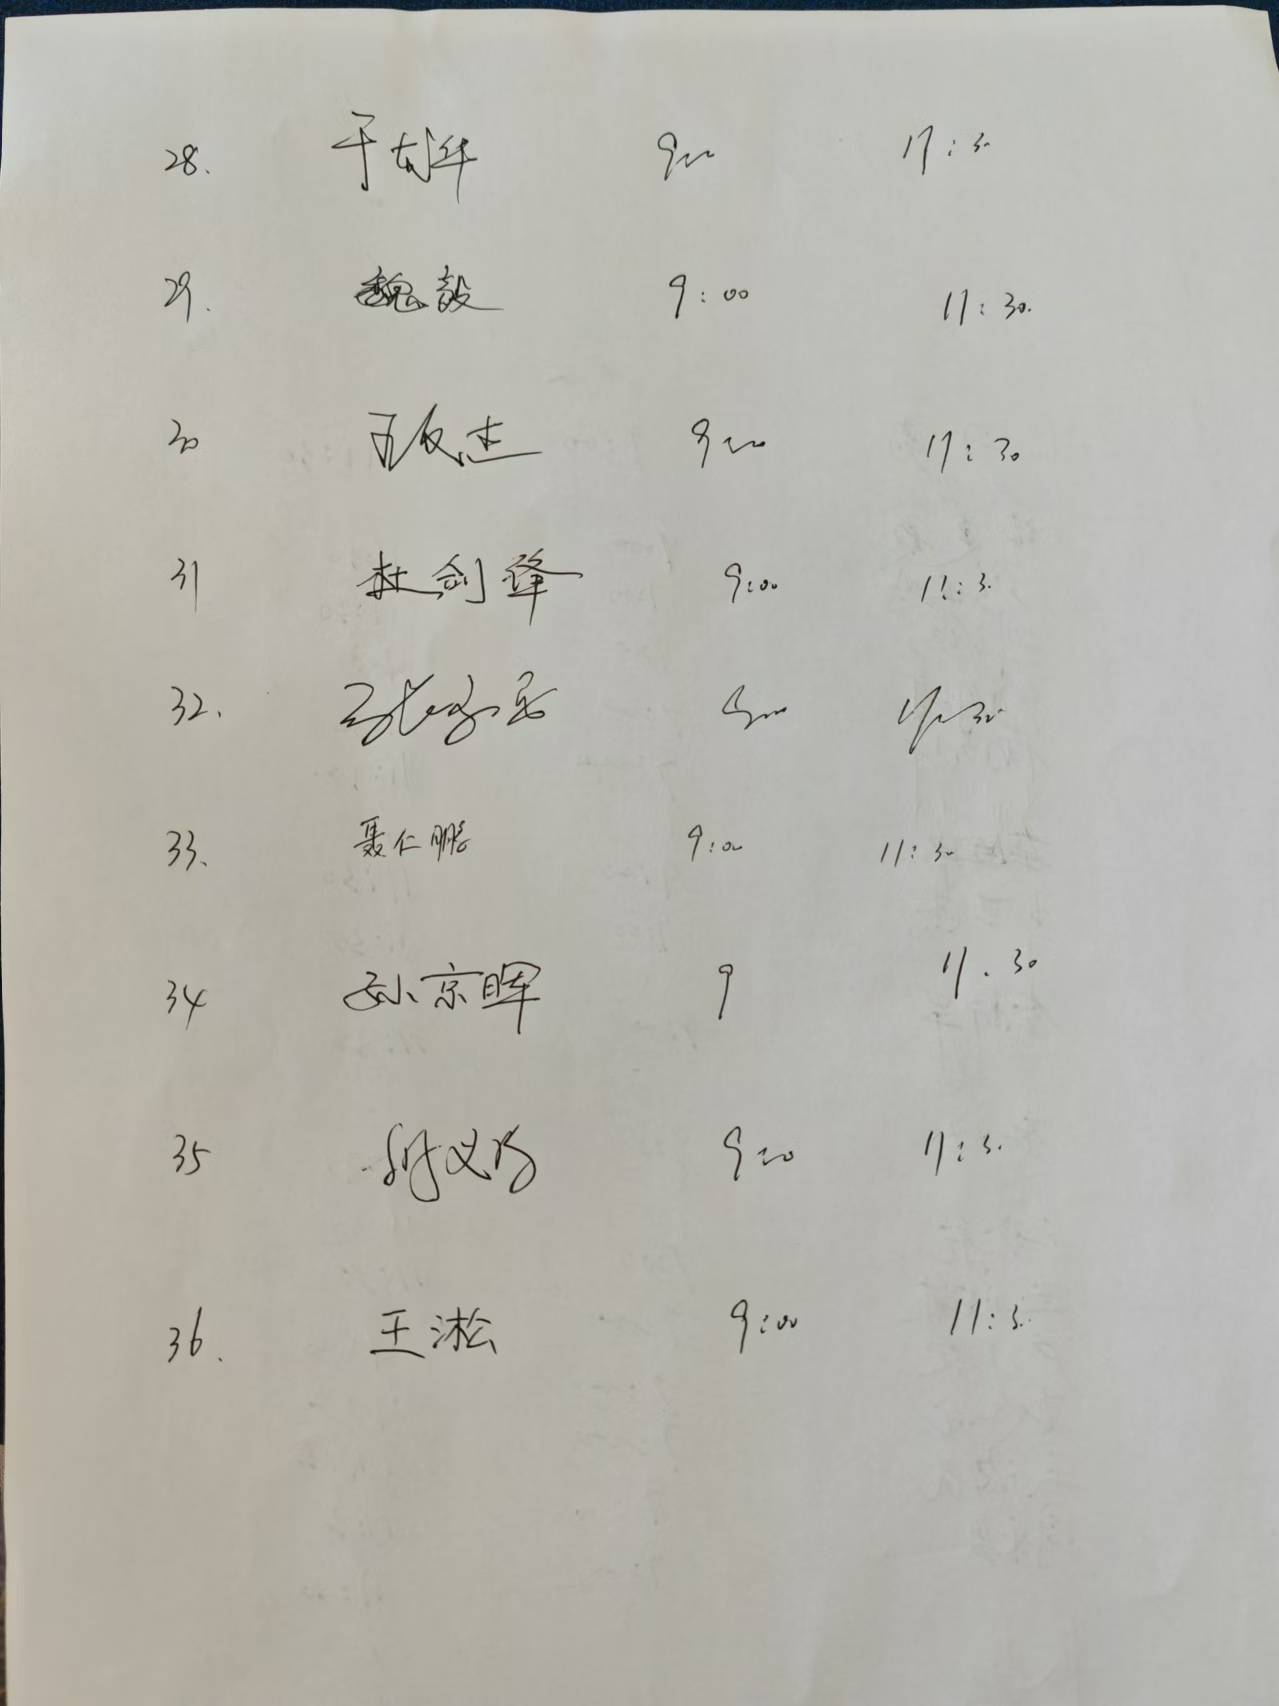 28. 于 9:00 11:30
29. 魏毅 9:00 11:30.
30 9:00 11:30
31 杜剑锋 9:00 11:30
32. 9:00 11:30
33. 聂仁鹏 9:00 11:30
34 孙京晖 9 11.30
35 9:00 11:30
36. 王淞 9:00 11:30